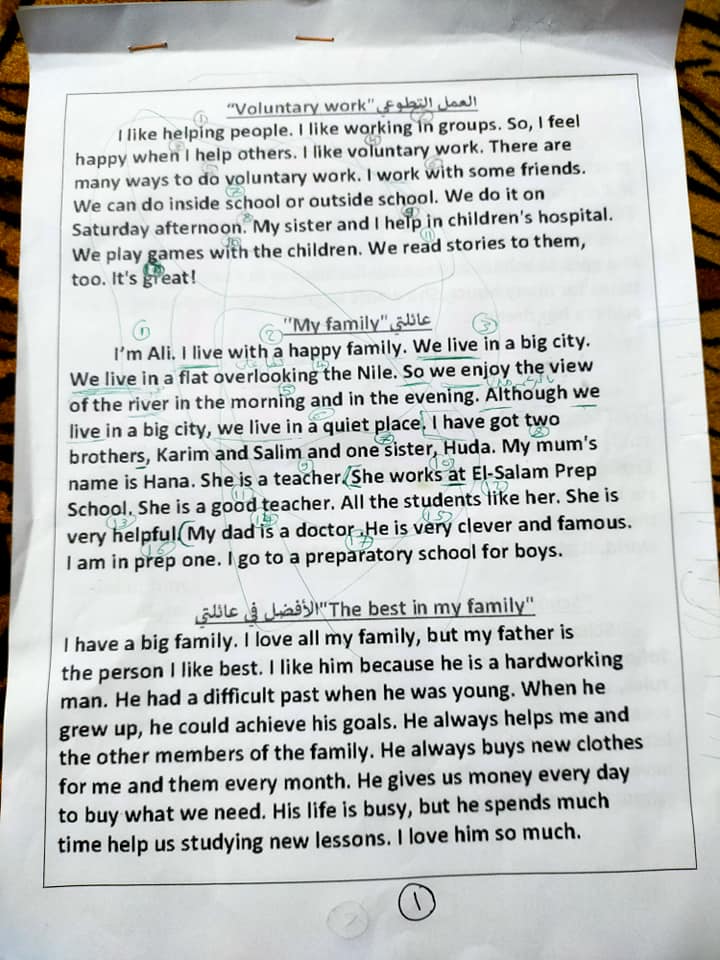 "Voluntary work" العمل التطوعي
I like helping people. I like working in groups. So, I feel
happy when I help others. I like voluntary work. There are
many ways to do voluntary work. I work with some friends.
We can do inside school or outside school. We do it on
Saturday afternoon. My sister and I help in children's hospital.
We play games with the children. We read stories to them,
too. It's great!
"My family" عائلتي
I'm Ali. I live with a happy family. We live in a big city.
We live in a flat overlooking the Nile. So we enjoy the view
of the river in the morning and in the evening. Although we
live in a big city, we live in a quiet place. I have got two
brothers, Karim and Salim and one sister, Huda. My mum's
name is Hana. She is a teacher. She works at El-Salam Prep
School. She is a good teacher. All the students like her. She is
very helpful. My dad is a doctor .He is very clever and famous.
I am in prep one. I go to a preparatory school for boys.
الأفضل في عائلتي "The best in my family"
I have a big family. I love all my family, but my father is
the person I like best. I like him because he is a hardworking
man. He had a difficult past when he was young. When he
grew up, he could achieve his goals. He always helps me and
the other members of the family. He always buys new clothes
for me and them every month. He gives us money every day
to buy what we need. His life is busy, but he spends much
time help us studying new lessons. I love him so much.
1